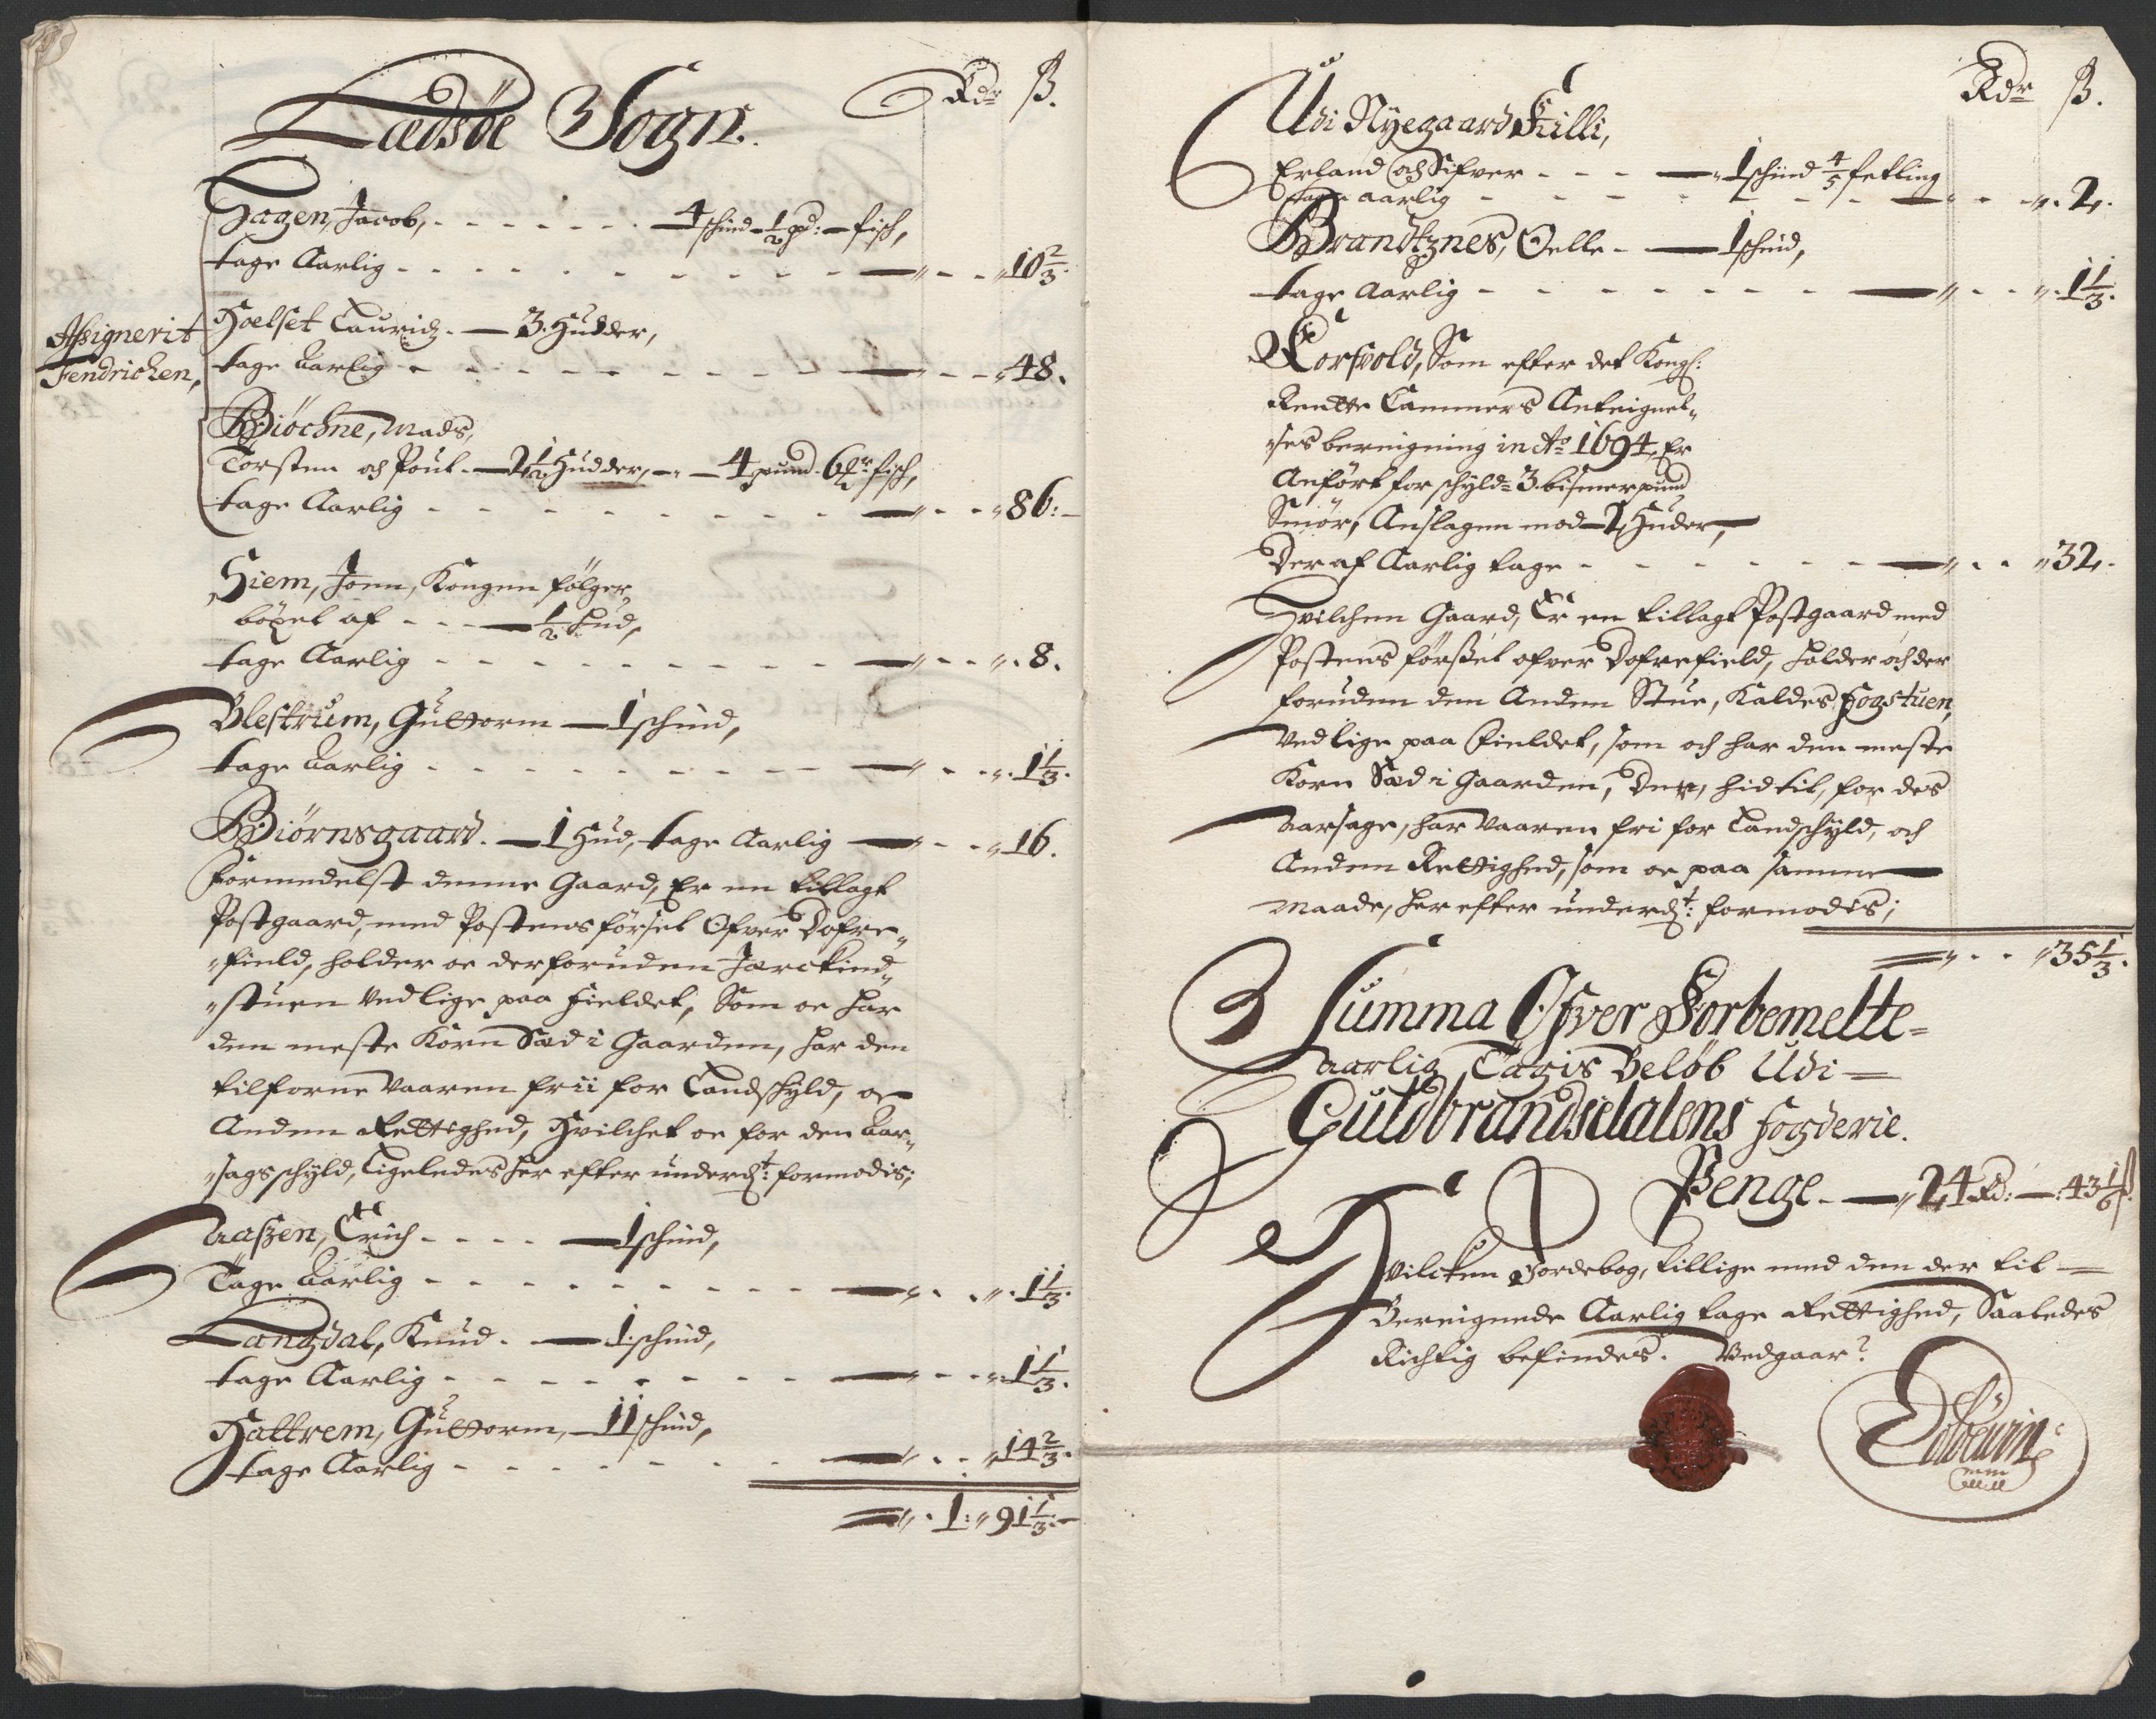 Rdr ß.
Lædsöe Sogn.
Hagen, Jacob, - - - - - - 4 schind - 1/2 pd: - fisch,
tage Aarlig - - - - - - - - - - „ - - „ 10 2/3.
Assignerit
Fendrichen,
Hoelset Lauridz. - 3. Hudder,
tage Aarlig - - - - - - - - - „ - - „ 48.
Biöchne, Mads,
Torsten och Poul - 2 1/2 Hudder, - „ - 4 pund - 6 fisch,
tage Aarlig - - - - - - - - - „ - - „ 86: -
Hiem, Joen, Kongen fölger
böxel af - - - 1/2 Hud,
tage Aarlig - - - - - - - - - „ - - „ . 8.
Blestrum, Guttorm - 1 schind,
tage Aarlig - - - - - - - - - „ - - „ . 1 1/3.
Biörnsgaard. - 1 Hud, tage Aarlig - „ - - „ 16.
formedelst denne Gaard, Er en tillagt
Postgaard, med Postens försel Ofver Dofre„
„field, holder oc derforuden Jerckind„
„stuen ved lige paa fieldet, Som oc har
den meste Korn Sæd i Gaarden, har den
tilforne vaaren frii for Landschyld, oc
Anden Rettighed, Hvilchet oc for den Aar„
„sags schyld, Ligeledes her efter underd:t formodis;
Aaszen, Erich - - - - 1 schind,
Tage Aarlig - - - - - - - - - „ . . „ . 1 1/3.
Langdal, Knud. - 1. schind,
tage Aarlig - - - - - - - - „ - - „ 1 1/3.
Hattrem, Guttorm, - 11 schind,
tage Aarlig - - - - - - - - „ . . „ 14 2/3.
„ . 1: „ 91 1/3. -
Rdr ß.
Udi Nyegaard Killi,
Erland och Sifver - - - - „ 1 schind 4/5 setling
tage aarlig - - - - - - - - „ . 2.
Brandtznes, Oelle - - 1 schind,
tage Aarlig - - - - - - - „ . . „ . 1 1/3.
Korsvold, Som efter det Kongl:
Rentte Cammers Anteignel„
„ses beregning in Ao 1694, Er
Anfört for schyld 3. bismerpund
Smör, Anslagen mod - 2 Huder, -
Deraf Aarlig tage - - - - - - „ . . „ 32.
Hvilchen Gaard, Er en tillagt Postgaard med
Postens förssel ofver Dofrefield, holder och der
foruden den Anden Stue, Kaldes fogstuen,
ved lige paa fieldet, som och har den meste
Korn Sæd i Gaarden, Der, hidtil, for des
Aarsage, har vaaren fri for Landschyld, och
Anden Rettighed, som oc paa samme
maade, her efter underd:t formodis;
„ . . „ 35 1/3.
Summa Ofver Forbemelte=
aarlig Tagis Beløb Udi =
Guldbrandsdalens fogderie.
Penge. - „ 24 Rd: - 43 1/6 ß.
Hvilcken Jordebog, tillige med den der til =
Beregnede Aarlig tage Rettighed, Saaledes
Richtig befindes. Vedgaar?